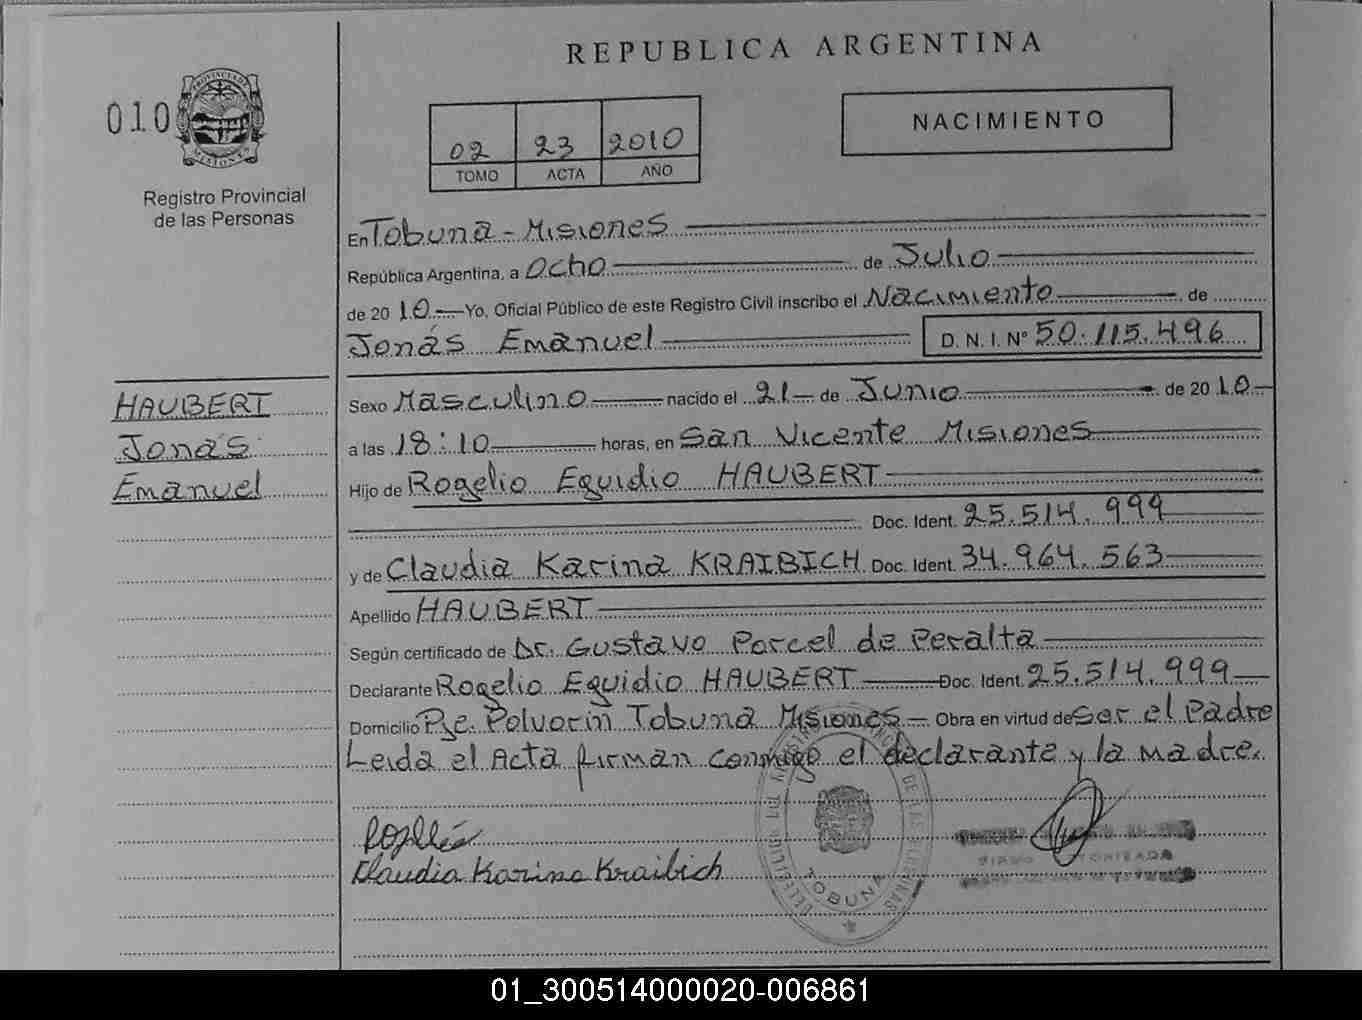 REPUBLICA ARGENTINA
010
PROVINCIA DE MISIONES
Registro Provincial
de las Personas
02 23 2010
TOMO ACTA AÑO
NACIMIENTO
En Tobuna - Misiones
República Argentina, a Ocho de Julio
de 2010 Yo, Oficial Público de este Registro Civil inscribo el Nacimiento de
Jonás Emanuel D. N. I. N° 50.115.496
HAUBERT
Jonás
Emanuel
Sexo Masculino nacido el 21 de Junio de 2010
a las 18:10 horas, en San Vicente Misiones
Hijo de Rogelio Eguidio HAUBERT
Doc. Ident. 25.514.999
y de Claudia Karina KRAIBICH Doc. Ident. 34.964.563
Apellido HAUBERT
Según certificado de Dr. Gustavo Porcel de Peralta
Declarante Rogelio Eguidio HAUBERT Doc. Ident. 25.514.999
Domicilio Pje. Polvorin Tobuna Misiones Obra en virtud de Ser el Padre
Leida el Acta firman conmigo el declarante y la madre.
Claudia Karina Kraibich
DE LAS PERSONAS
TOBUNA
01_300514000020-006861